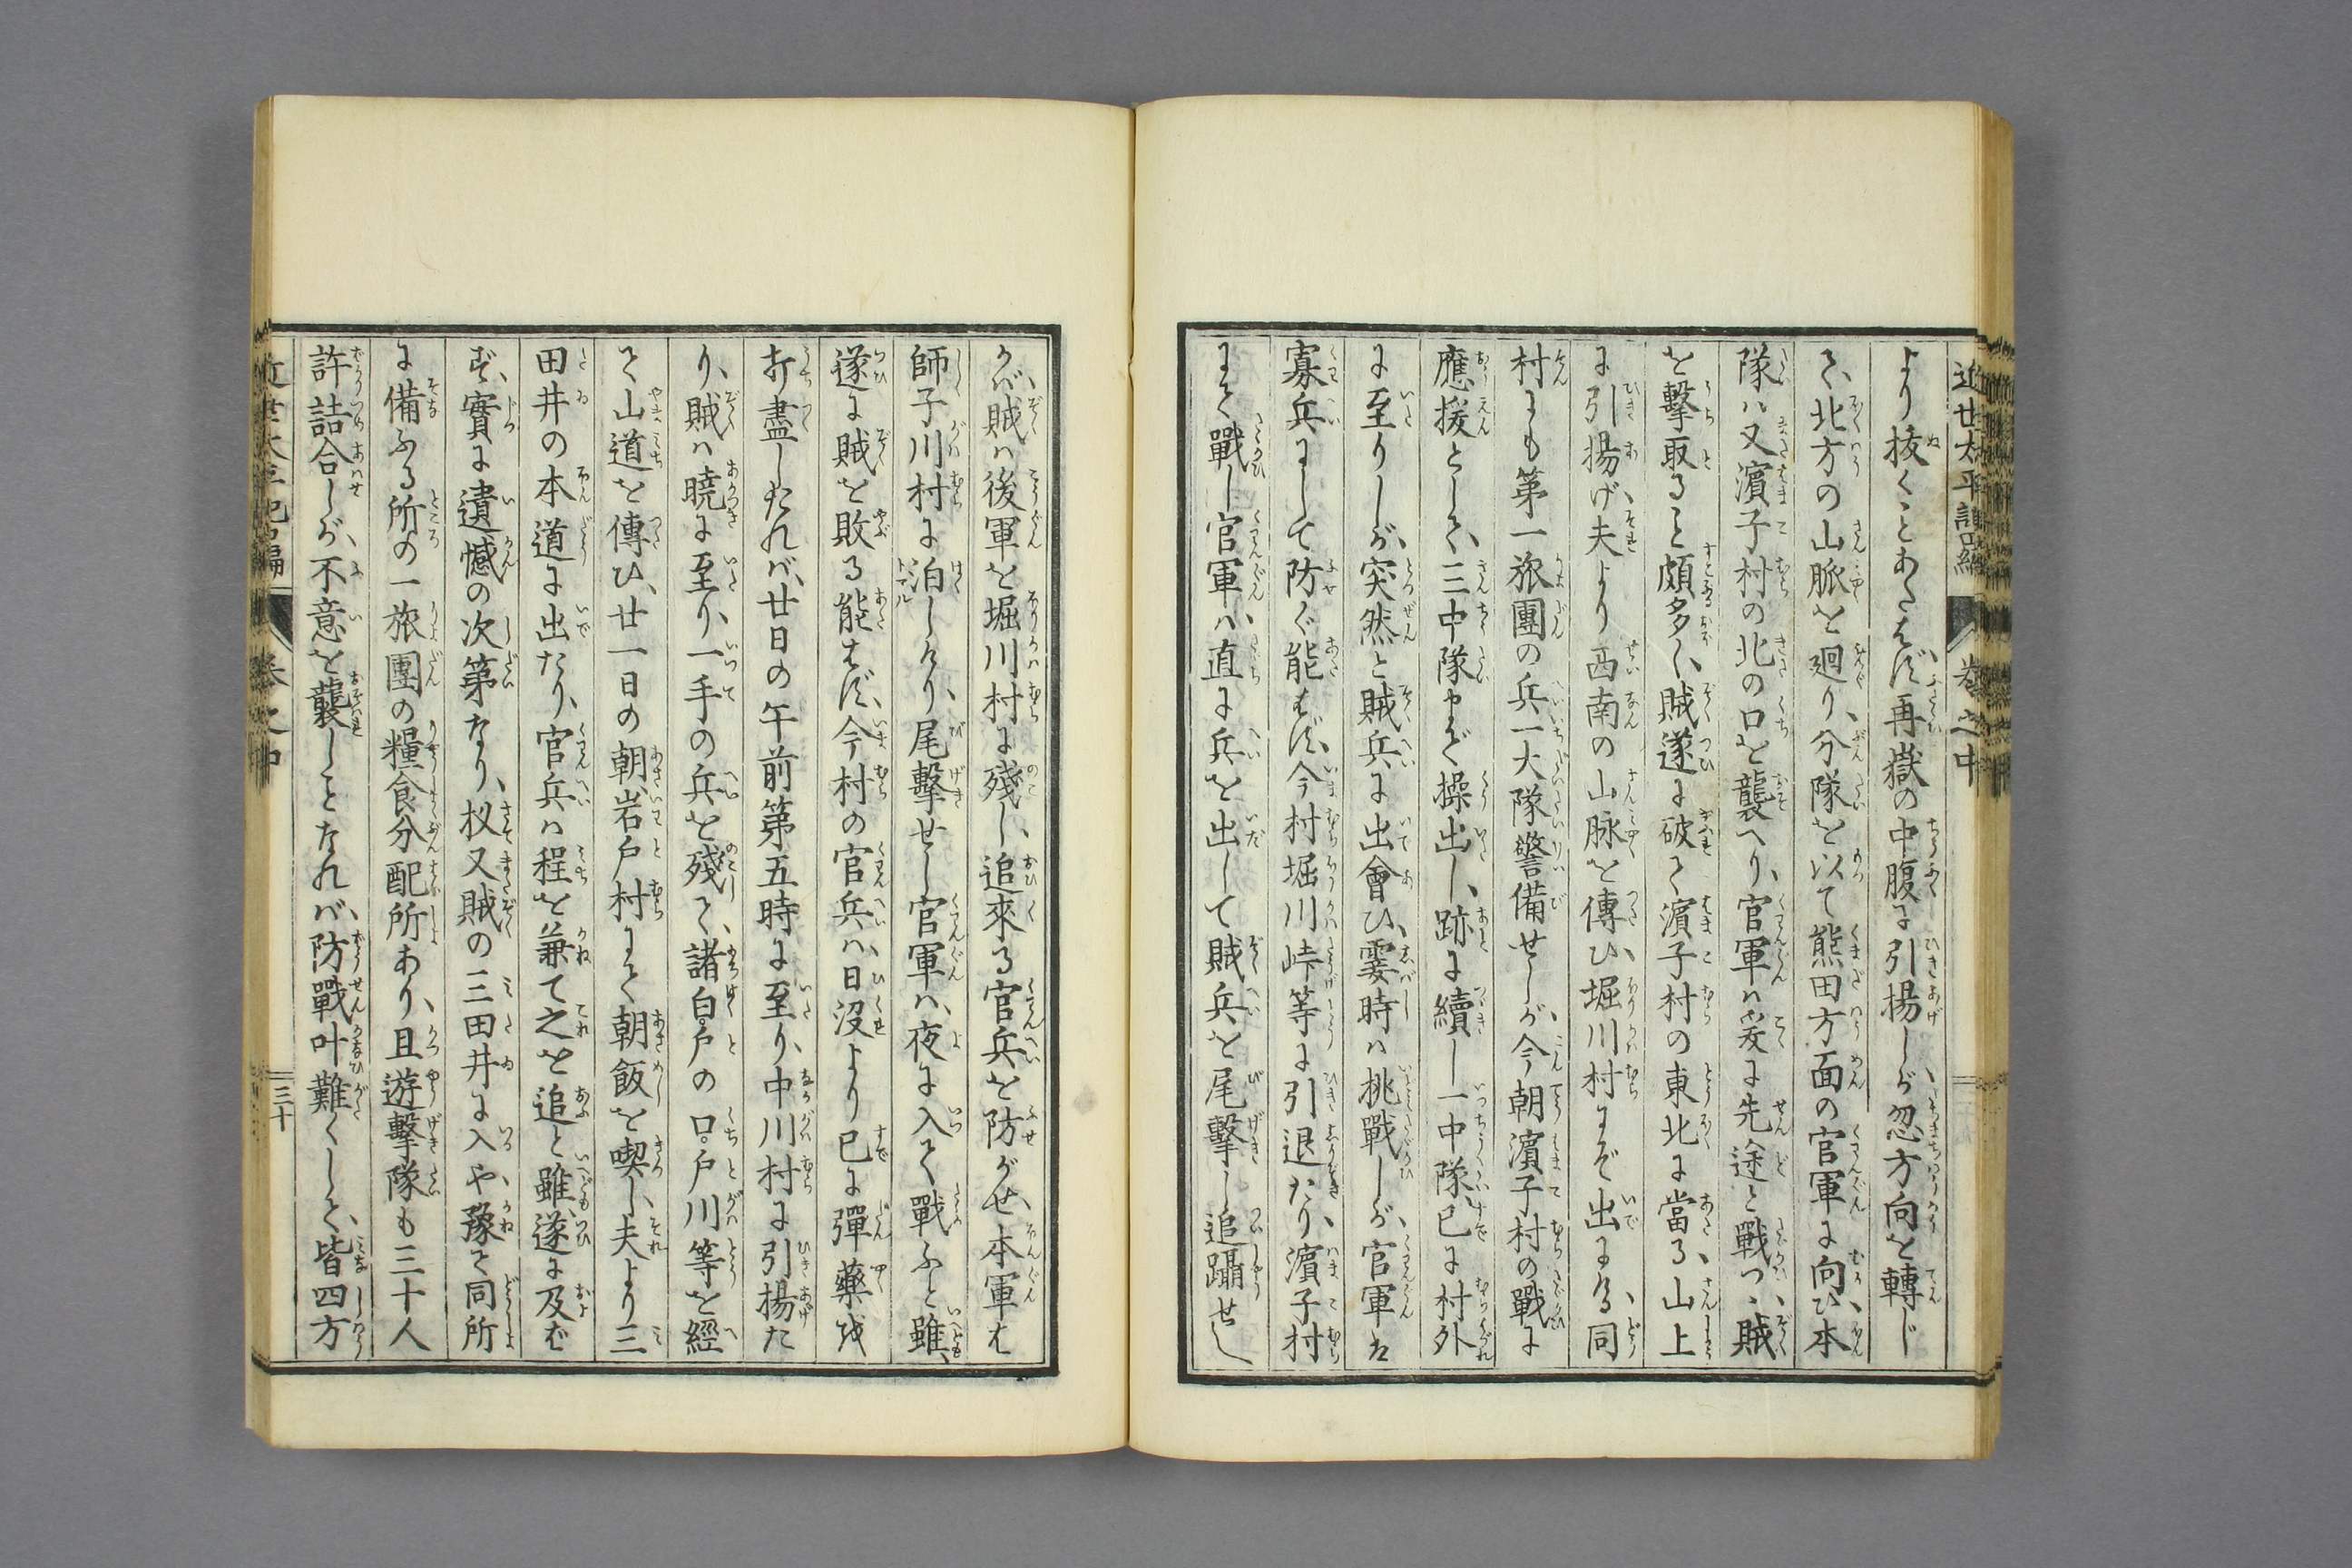 より抜くことあたはず、再嶽の中腹に引揚しが、忽方向を轉じ
て、北方の山脈を廻り、分隊を以て熊田方面の官軍に向ひ、本
隊ハ又濱子村の北の口を襲へり、官軍ハ爰に先途と戰つ、賊
を擊取ること頗多く、賊遂に破て濱子村の東北に當る、山上
に引揚げ、夫より西南の山脉を傳ひ、堀川村まで出にける、同
村にも第一旅團の兵一大隊警備せしが、今朝濱子村の戰に
應援として、三中隊まで操出し、跡に續し一中隊、已に村外
に至りしが、突然と賊兵に出會ひ、霎時ハ挑戰しが、官軍は
寡兵にして防ぐ能はず、今村堀川峠等に引退たり、濱子村
にて戰し官軍ハ、直に兵を出して賊兵を尾擊し追躡せし
かバ、賊ハ後軍を堀川村に殘し、追來る官兵を防がせ、本軍は
師子川村に泊しけり、尾擊せし官軍ハ、夜に入て戰ふと雖、
遂に賊を敗る能はず、今村の官兵ハ、日沒より已に彈藥を
打盡したれバ、廿日の午前第五時に至り、中川村に引揚た
り、賊ハ曉に至り、一手の兵を殘して、諸白戸の口。戸川等を經
て山道を傳ひ、廿一日の朝岩戸村にて朝飯を喫し、夫より三
田井の本道に出たり、官兵ハ程を兼て之を追と雖、遂に及ば
ず、實に遺憾の次第なり、扨又賊の三田井に入や、豫て同所
に備ふる所の一旅團の糧食分配所あり、且遊擊隊も三十人
許詰合しが、不意を襲しことなれバ、防戰叶難くして、皆四方
卷之中
三十